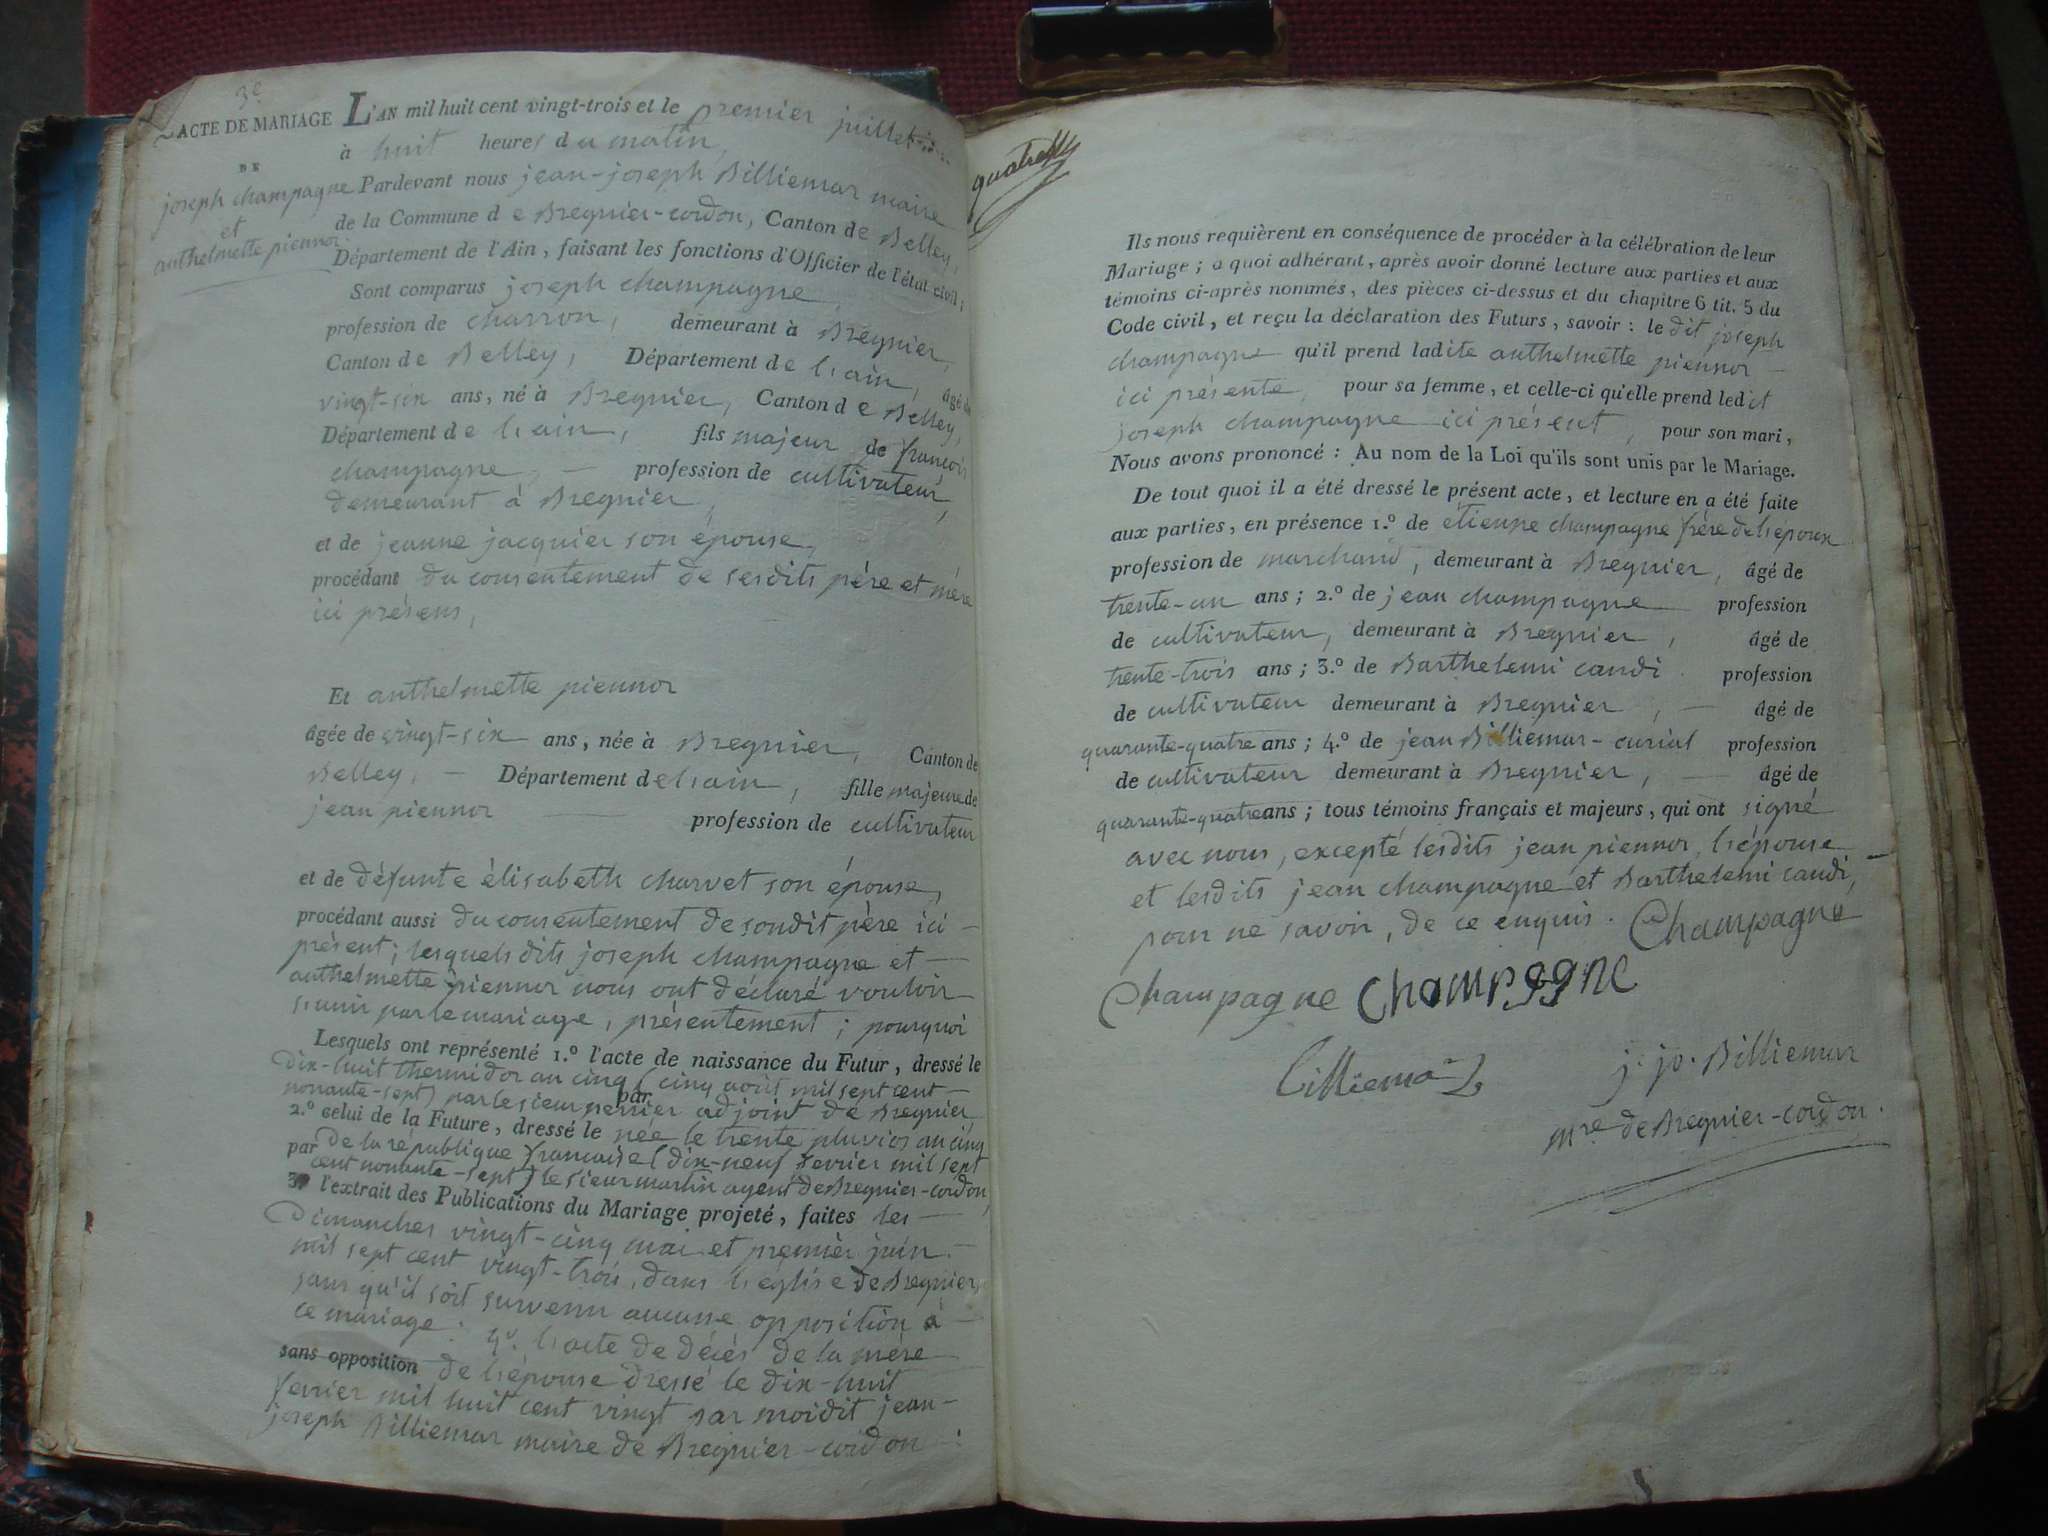 3e
ACTE DE MARIAGE
DE
joseph champagne
et
anthelmette piennor
L'AN mil huit cent vingt-trois et le premier juillet
à huit heures du matin,
Pardevant nous jean-joseph Billiemaz maire
de la Commune de Bregnier-cordon, Canton de Belley,
Département de l'Ain, faisant les fonctions d'Officier de l'état civil;
Sont comparus joseph champagne,
profession de charron, demeurant à Bregnier,
Canton de Belley, Département de l'ain, âgé de
vingt-six ans, né à Bregnier, Canton de Belley,
Département de l'ain, fils majeur de françois
champagne, profession de cultivateur,
demeurant à Bregnier,
et de jeanne jacquier son épouse,
procédant du consentement de sesdits père et mère
ici présens,
Et anthelmette piennor
âgée de vingt-six ans, née à Bregnier, Canton de
Belley, Département de l'ain, fille majeure de
jean piennor profession de cultivateur
et de défunte élisabeth charvet son épouse,
procédant aussi du consentement de sondit père ici
présent; lesquels dits joseph champagne et
anthelmette piennor nous ont déclaré vouloir
s'unir par le mariage, présentement; pourquoi
Lesquels ont représenté 1.º l'acte de naissance du Futur, dressé le
dix-huit thermidor an cinq (cinq août mil sept cent
nonante-sept) par le sieur perrier adjoint de Bregnier
par
2.º celui de la Future, dressé le née le trente pluvios an cinq
par de la république française (dix-neuf fevrier mil sept
cent nonante-sept) le sieur martin agent de Bregnier-cordon,
3º l'extrait des Publications du Mariage projeté, faites les
Dimanches vingt-cinq mai et premier juin
mil sept cent vingt-trois, dans l'eglise de Bregnier,
sans qu'il soit survenu aucune opposition à
ce mariage: 4º. l'acte de décés de la mère
sans opposition de l'épouse dressé le dix-huit
fevrier mil huit cent vingt par moidit jean-
joseph Billiemaz maire de Bregnier-cordon:
Ils nous requièrent en conséquence de procéder à la célébration de leur
Mariage; a quoi adhérant, après avoir donné lecture aux parties et aux
témoins ci-après nommés, des pièces ci-dessus et du chapitre 6 tit. 5 du
Code civil, et reçu la déclaration des Futurs, savoir: le dit joseph
champagne qu'il prend ladite anthelmette piennor
ici présente, pour sa femme, et celle-ci qu'elle prend ledit
joseph champagne ici présent, pour son mari,
Nous avons prononcé: Au nom de la Loi qu'ils sont unis par le Mariage.
De tout quoi il a été dressé le présent acte, et lecture en a été faite
aux parties, en présence 1.º de étienne champagne frère de l'epoux
profession de marchand, demeurant à Bregnier, âgé de
trente-un ans; 2.º de jean champagne profession
de cultivateur, demeurant à Bregnier, âgé de
trente-trois ans; 3.º de Barthelemi candi profession
de cultivateur demeurant à Bregnier, âgé de
quarante-quatre ans; 4.º de jean Billiemaz-curial profession
de cultivateur demeurant à Bregnier, âgé de
quarante-quatre ans; tous témoins français et majeurs, qui ont signé
avec nous, excepté lesdits jean piennor, l'épouse
et lesdits jean champagne et Barthelemi candi,
pour ne savoir, de ce enquis. Champagne
Champagne Champagne
Billiemaz
j. jo. Billiemaz
mre de Bregnier-cordon.